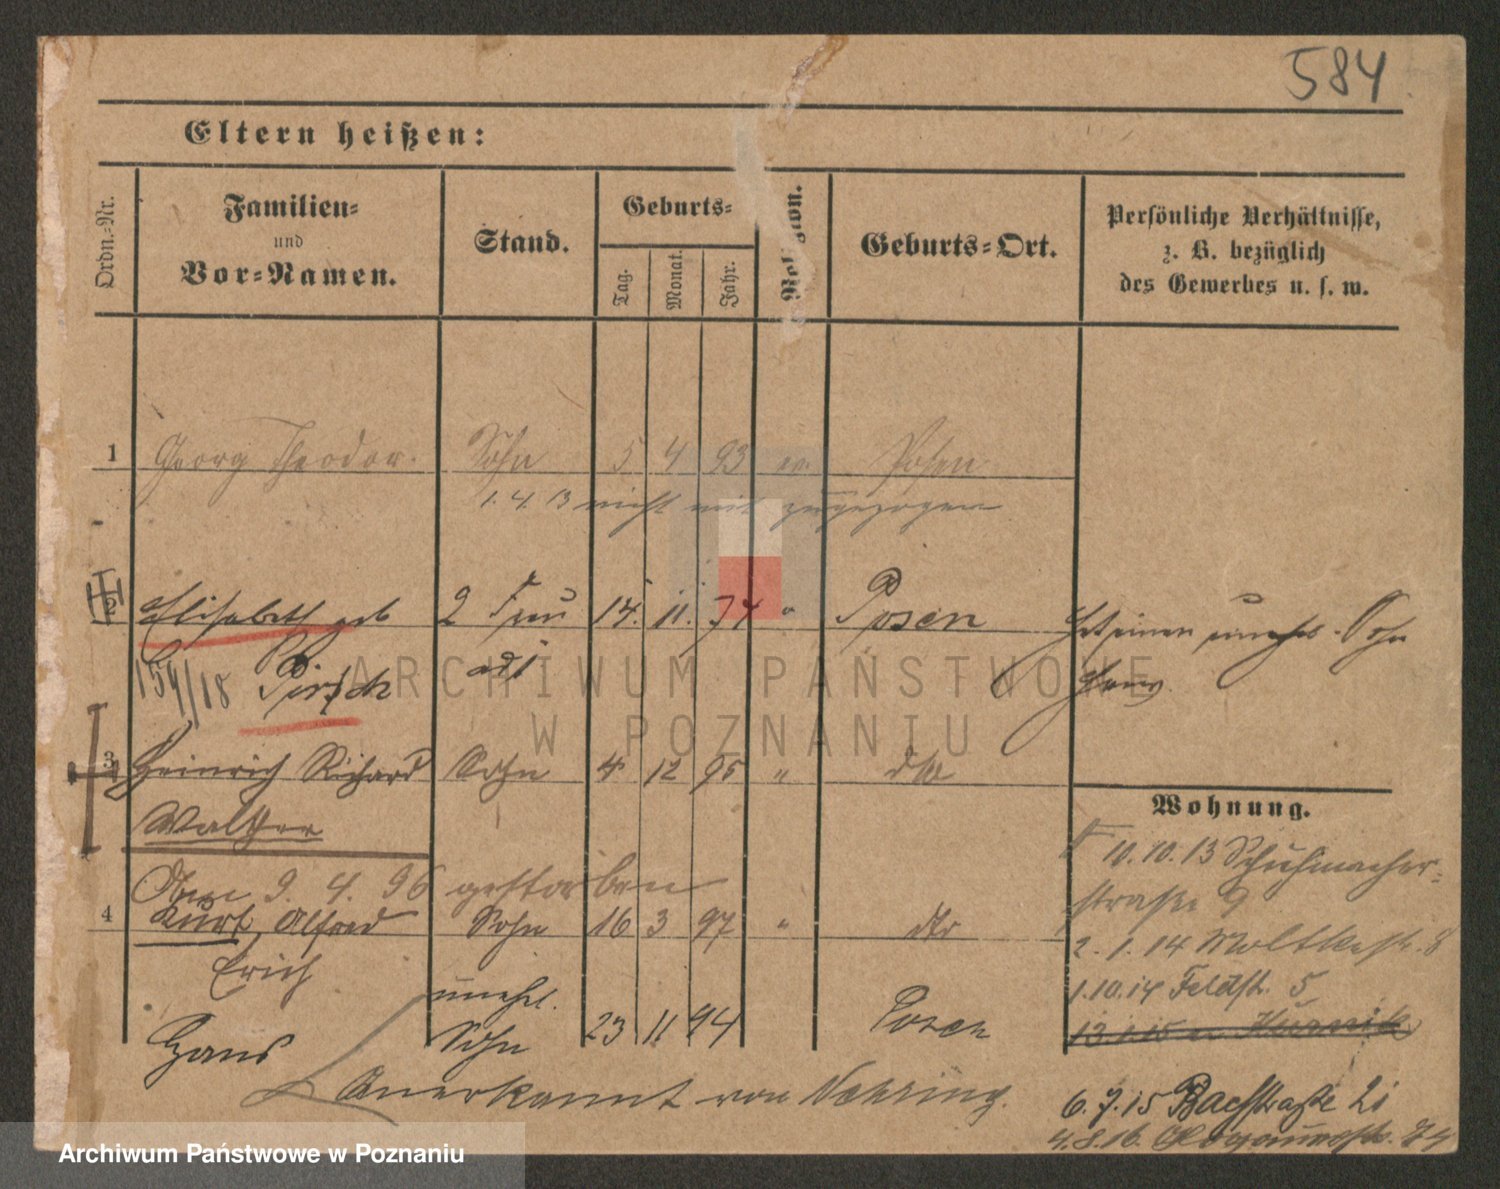 584
Eltern heißen:
Ordn.-Nr.
Familien-
und
Vor-Namen.
Stand.
Geburts-
Tag.
Monat.
Jahr.
Religion.
Geburts-Ort.
Persönliche Verhältnisse,
z. B. bezüglich
des Gewerbes u. s. w.
1 Georg Theodor. Sohn 5 4 93 ev. Posen
1. 4. 13 nicht mit zugezogen
2 Elisabeth geb 2 Frau 14. 11. 74 " Posen Hat einen unehel. Sohn
154/18 Pirsch Hans
ARCHIWUM PAŃSTWOWE
W POZNANIU
3 Heinrich Richard Sohn 4 12 95 " dto
Walther
Wohnung.
10.10.13 Schuhmacher-
straße 9
9. 4. 96 gestorben
4 Kurt, Alfred Sohn 16 3 97 " dto
2. 1. 14 Moltkestr. 8
Erich
1.10.14 Feldstr. 5
unehl.
Hans Sohn 23 11 94 Posen
13.1.15 n. Kurnik
Anerkannt von Nehring.
6.7.15 Bachstraße 21
4.8.16.
Archiwum Państwowe w Poznaniu